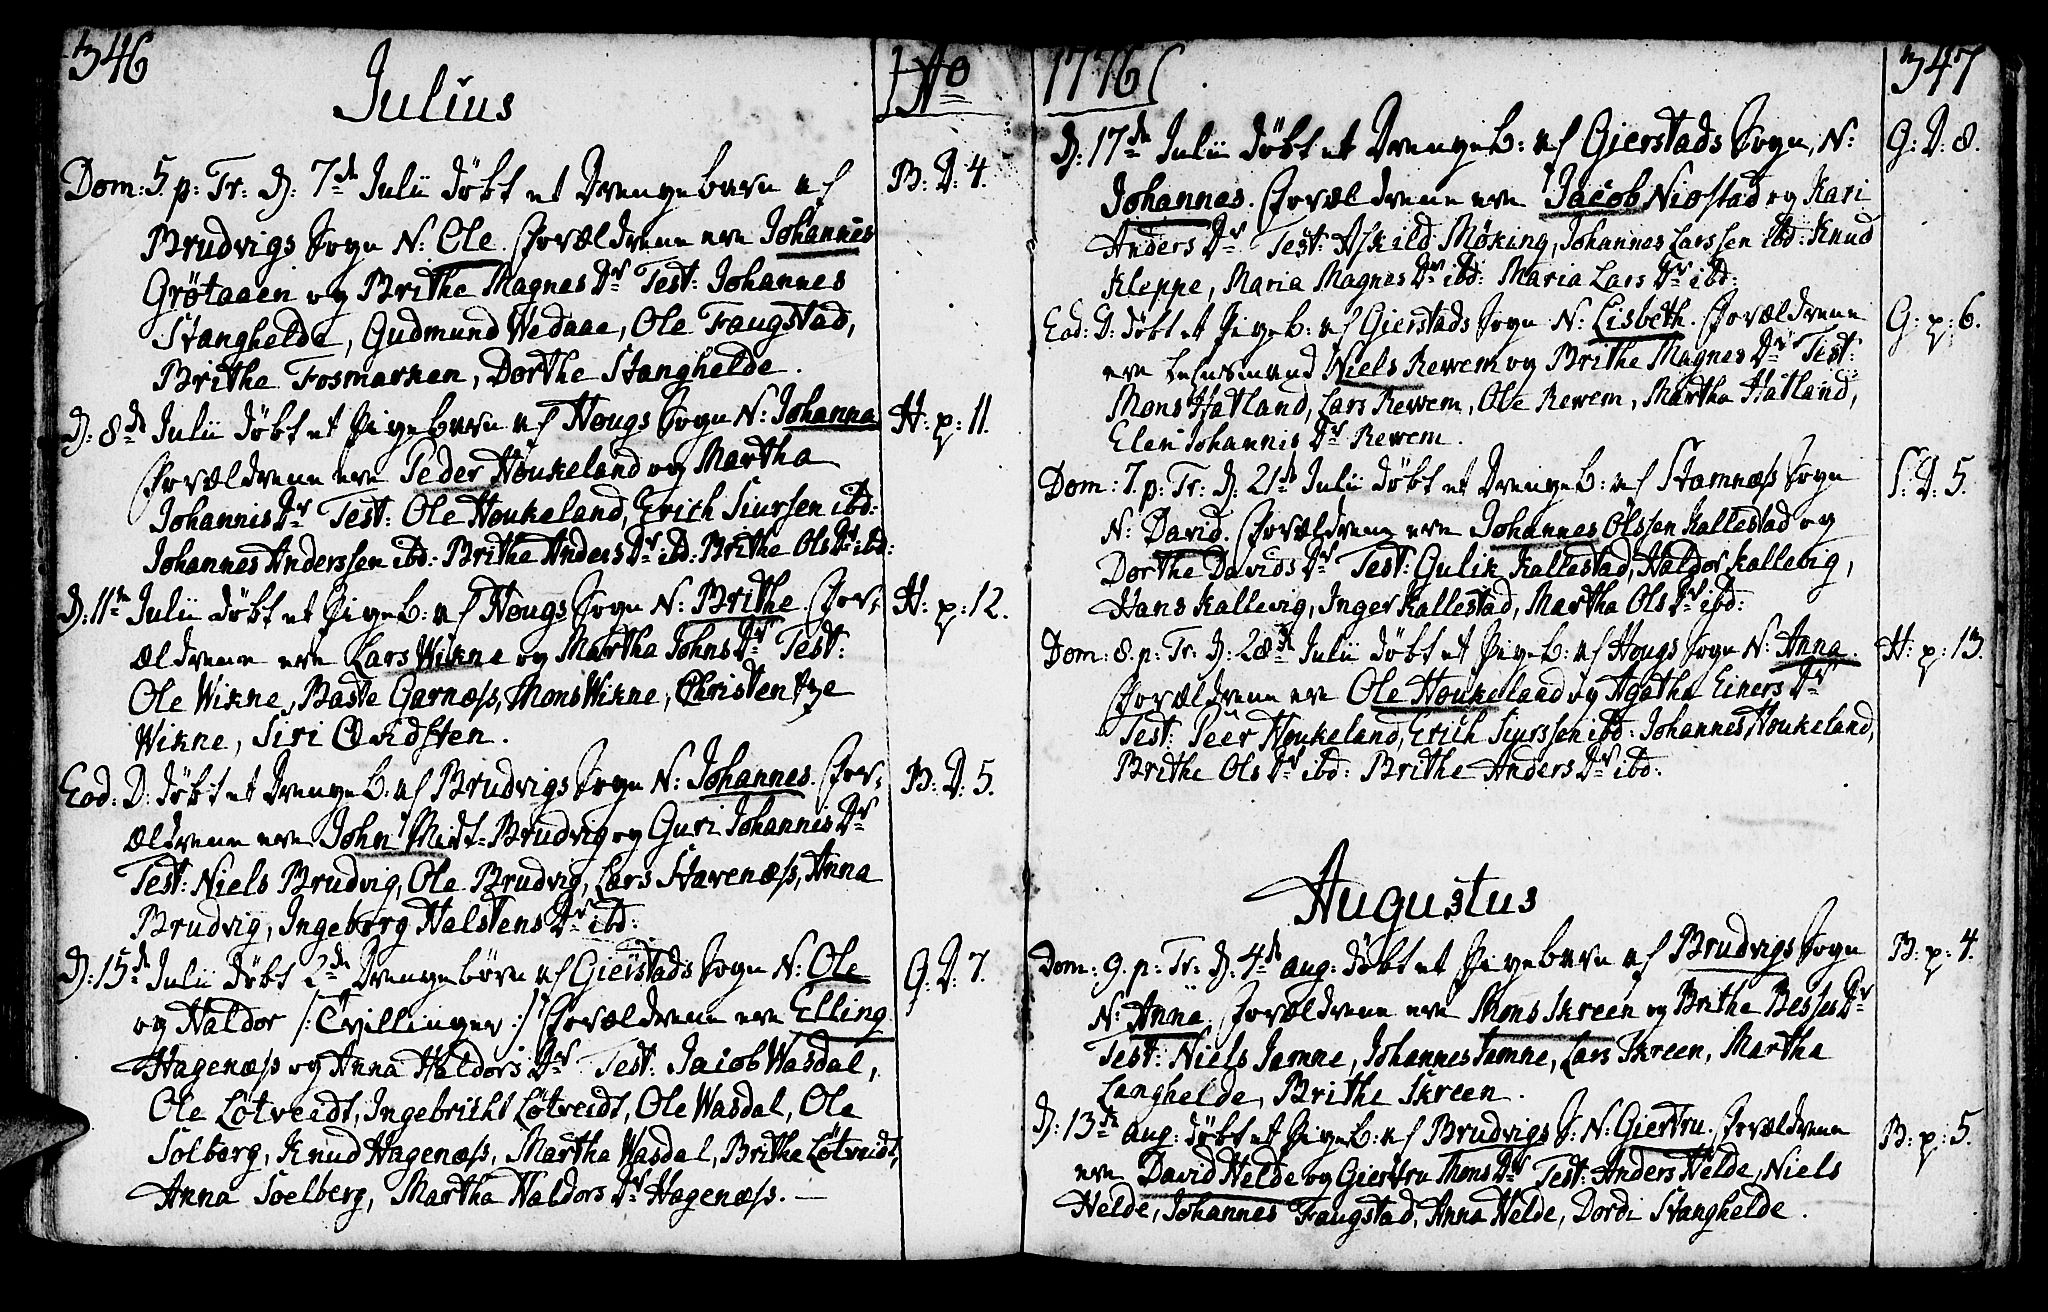 346
Julius
Ao
Dom: 5. p: Tr: D: 7de Julii döbt et Drengebarn af
B: D: 4.
Brudvigs Sogn N: Ole. Forældrene ere Johannes
Grötaaen og Brithe Magnes Dr Test: Johannes
Stanghelde, Gudmund Wedaae, Ole Faugstad,
Brithe Fosmarken, Dorthe Stanghelde.
D: 8de Julii döbt et Pigebarn af Hougs Sogn N: Johanna
H: p: 11.
Forældrene ere Peder Houkeland og Martha
Johannis Dr Test: Ole Houkeland, Erich Siursen ibd:
Johannes Anderssen ibd: Brithe Anders Dr ibd: Brithe Ols Dr ibd:
D: 11te Julii döbt et Pigeb: af Hougs Sogn N: Brithe. For-
H: p: 12.
ældrene ere Lars Wikne og Martha Johns Dr Test:
Ole Wikne, Baste Garnæss, Mons Wikne, Christentze
Wikne, Siri Qvidsten.
Eod: D: döbt et Drengeb: af Brudvigs Sogn N: Johannes. For-
B: D: 5.
ældrene ere John Midt-Brudvig og Guri Johannis Dr
Test: Niels Brudvig, Ole Brudvig, Lars Stavenæss, Anna
Brudvig, Ingeborg Halstens Dr ibd:
D: 15de Julii döbt 2de Drengebörn af Gierstads Sogn N: Ole
G: D: 7.
og Haldor /: Tvillinger :/ Forældrene ere Elling
Hagenæss og Anna Haldors Dr Test: Jacob Wasdal,
Ole Lötveidt, Ingebricht Lötveidt, Ole Wasdal, Ole
Solberg, Knud Hagenæss, Martha Wasdal, Brithe Lötveidt,
Anna Soelberg, Martha Haldors Dr Hagenæss. —
1776
347
D: 17de Julii döbt et Drengeb: af Gierstads Sogn, N:
G: D: 8.
Johannes. Forældrene ere Jacob Niostad og Kari
Anders Dr Test: Askild Möking, Johannes Larssen ibd: Knud
Kleppe, Maria Magnes Dr ibd: Maria Lars Dr ibd:
Eod: D: döbt et Pigeb: af Gierstads Sogn N: Lisbeth. Forældrene
G: p: 6.
ere Lehnsmand Niels Rewem og Brithe Magnes Dr Test:
Mons Hatland, Lars Rewem, Ole Rewem, Martha Hatland,
Eleri Johannis Dr Rewem.
Dom: 7. p: Tr: D: 21de Julii döbt et Drengeb: af Stamnæss Sogn
S: D: 5.
N: David. Forældrene ere Johannes Olssen Kallestad og
Dorthe Davids Dr Test: Gulik Kallestad, Haldor Kallevig,
Hans Kallevig, Inger Kallestad, Martha Ols Dr ibd:
Dom: 8. p: Tr: D: 28de Julii döbt et Pigeb: af Hougs Sogn N: Anna.
H: p: 13.
Forældrene ere Ole Houkelaad og Agatha Einers Dr
Test: Peer Houkeland, Erich Siurssen ibd: Johannes Houkeland,
Brithe Ols Dr ibd: Brithe Anders Dr ibd:
Augustus
Dom: 9. p: Tr: D: 4de aug: döbt et Pigebarn af Brudvigs Sogn
B: p: 4.
N: Anna. Forældrene ere Mons Skreen og Brithe Besses Dr
Test: Niels Jamne, Johannes Jamne, Lars Skreen, Martha
Langhelde, Brithe Skreen.
D: 13de aug: döbt et Pigeb: af Brudvigs S: N: Giertru. Forældrene
B: p: 5.
ere David Helde og Giertru Mons Dr Test: Anders Helde, Niels
Helde, Johannes Faugstad, Anna Helde, Dordi Stanghelde.